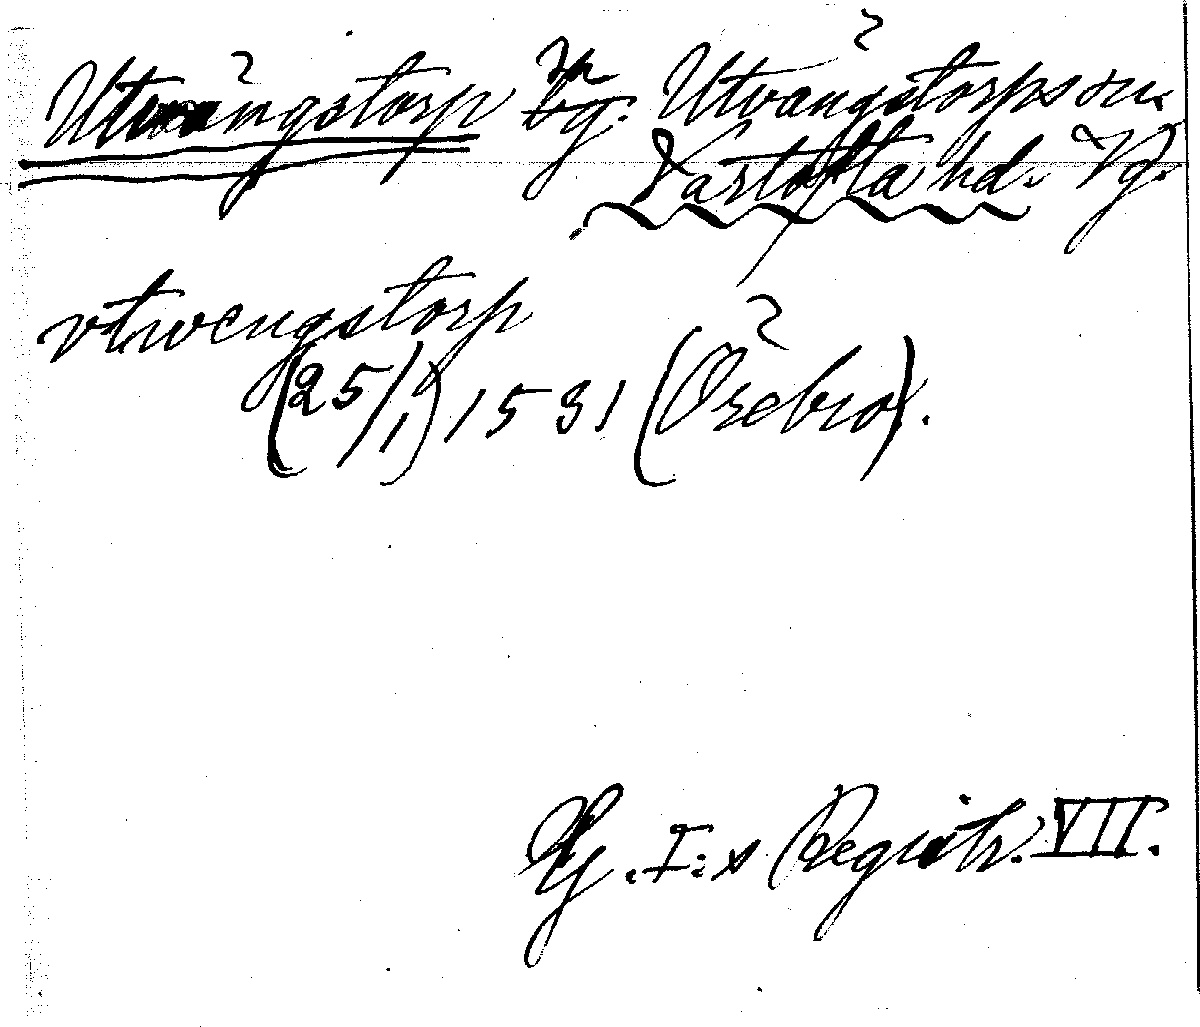 Utvängstorp sn Utvängstorps sn.
Vartofta hd. Vg.
vtwengstorp
(25/1) 1531 (Örebro).
G. I:s Registr. VII.